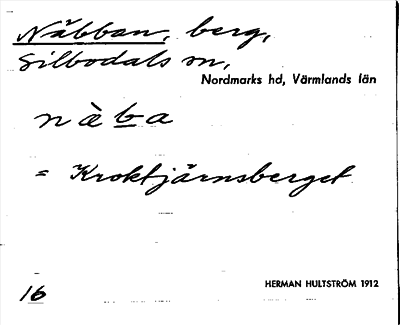 Näbban, berg,
Silbodals sn,
Nordmarks hd, Värmlands län
nàba
= Kroktjärnsberget
HERMAN HULTSTRÖM 1912
16